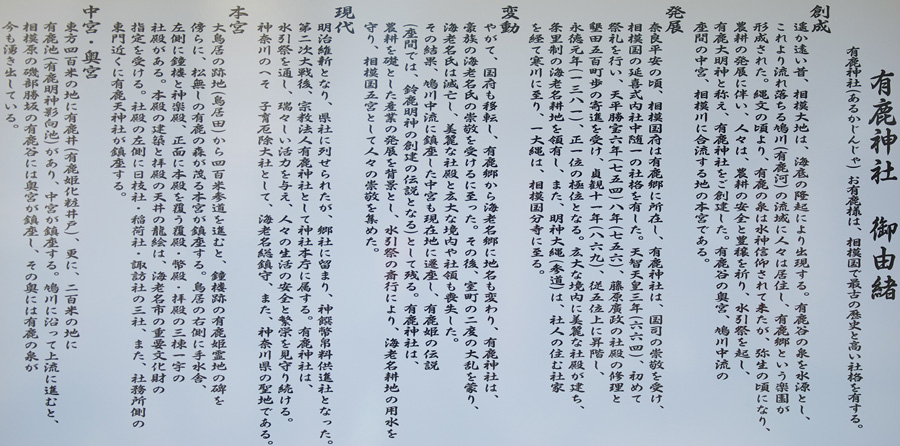 有鹿神社 御由緒
有鹿神社(あるかじんじゃ)お有鹿様は、相模国で最古の歴史と高い社格を有する。
創成
遥か遠い昔、相模大地は、海底の隆起により出現する。有鹿谷の泉を水源とし、
これより流れ落ちる鳩川(有鹿河)の流域に人々は居住し、有鹿郷という楽園が
形成された。縄文の頃より、有鹿の泉は水神信仰されて来たが、弥生の頃になり、
農耕の発展に伴い、人々は、農耕の安全と豊穣を祈り、水引祭を起し、
有鹿大明神と称え、有鹿神社をご創建した。有鹿谷の奥宮、鳩川中流の
座間の中宮、相模川に合流する地の本宮である。
発展
奈良平安の頃、相模国府は有鹿郷に所在し、有鹿神社は、国司の崇敬を受け、
相模国の延喜式内社中随一の社格を誇る。天智天皇三年(六六四)、初めて
祭礼を行い、天平勝宝六年(七五四)八年(七五六)、藤原廣政の社殿の修理と
墾田五百町歩の寄進を受け、貞観十一年(八六九)、従五位上に昇階、
永徳元年(一三八一)、正一位の極位となる。広大な境内に美麗な社殿が建ち、
条里制の海老名耕地を領有し、また、明神大縄(参道)は、社人の住む社家
を経て寒川に至り、一大縄は、相模国分寺に至る。
変動
やがて、国府も移転し、有鹿郷から海老名郷に地名も変わり、有鹿神社は、
豪族の海老名氏の崇敬を受けるに至った。その後、室町の二度の大乱を蒙り、
海老名氏は滅亡し、美麗な社殿と広大な境内や社領も喪失した。
その結果、鳩川中流に鎮座した中宮も現在地に遷座し、有鹿姫の伝説
(座間では、鈴鹿明神の創建の伝説となる)として残る。有鹿神社は、
農耕を礎とした産業の発展を背景とし、水引祭の斎行により、海老名耕地の用水を
守り、相模国五宮として人々の崇敬を集めた。
現代
明治維新となり、県社に列せられたが、郷社に留まり、神饌幣帛料供進社となった。
第二次大戦後、宗教法人有鹿神社として神社本庁に属する。有鹿神社は、
水引祭を通し、瑞々しい活力を与え、人々の生活の安全と繁栄を見守り続ける。
神奈川のへそ 子育厄除大社として、海老名総鎮守、また、神奈川県の聖地である。
本宮
大鳥居の跡地(鳥居田)から四百米参道を進むと、鐘楼跡の有鹿姫霊地の碑を
傍らに、松無しの有鹿の森が茂る本宮が鎮座する。鳥居の右側に手水舎、
左側に鐘楼と神楽殿、正面に本殿を覆う覆殿・幣殿・拝殿の三棟一宇の
社殿がある。本殿の建築と拝殿の天井の龍絵は、海老名市の重要文化財の
指定を受ける。社殿の左側に日枝社・稲荷社・諏訪社の三社、また、社務所側の
東門近くに有鹿天神社が鎮座する。
中宮・奥宮
東方四百米の地に有鹿井(有鹿姫化粧井戸)、更に、二百米の地に
有鹿池(有鹿明神影向池)があり、中宮が鎮座する。鳩川に沿って上流に進むと、
相模原の磯部勝坂の有鹿谷には奥宮が鎮座し、その奥には有鹿の泉が
今も湧き出ている。